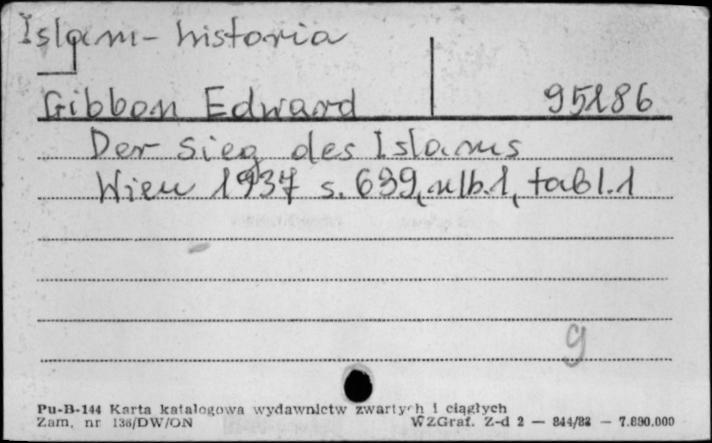 Islam - historia
Gibbon Edward 95186
Der Sieg des Islams
Wien 1937 s. 639, tabl. 1
9
Pu-B-144 Karta katalogowa wydawnictw zwartych i ciągłych
Zam. nr 136/DW/ON WZGraf. Z-d 2 — 844/82 — 7.890.000